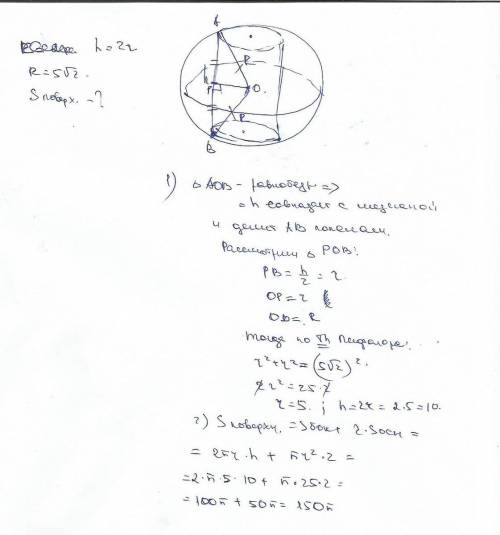 h = 2r
R = 5√2.
Sповерх. - ?
A
R
P
O.
R
B
1) △ AOB - равнобедр =>
=> h совпадает с медианой
и делит AB пополам.
Рассмотрим △ POB:
PB = h/2 = r
OP = r
OB = R
Тогда по Th Пифагора:
r² + r² = (5√2)².
2r² = 25·2
r = 5. ; h = 2r = 2·5 = 10.
2) Sповерхн. = Sбок + 2·Sосн =
= 2πr·h + πr²·2 =
= 2·π·5·10 + π·25·2 =
= 100π + 50π = 150π